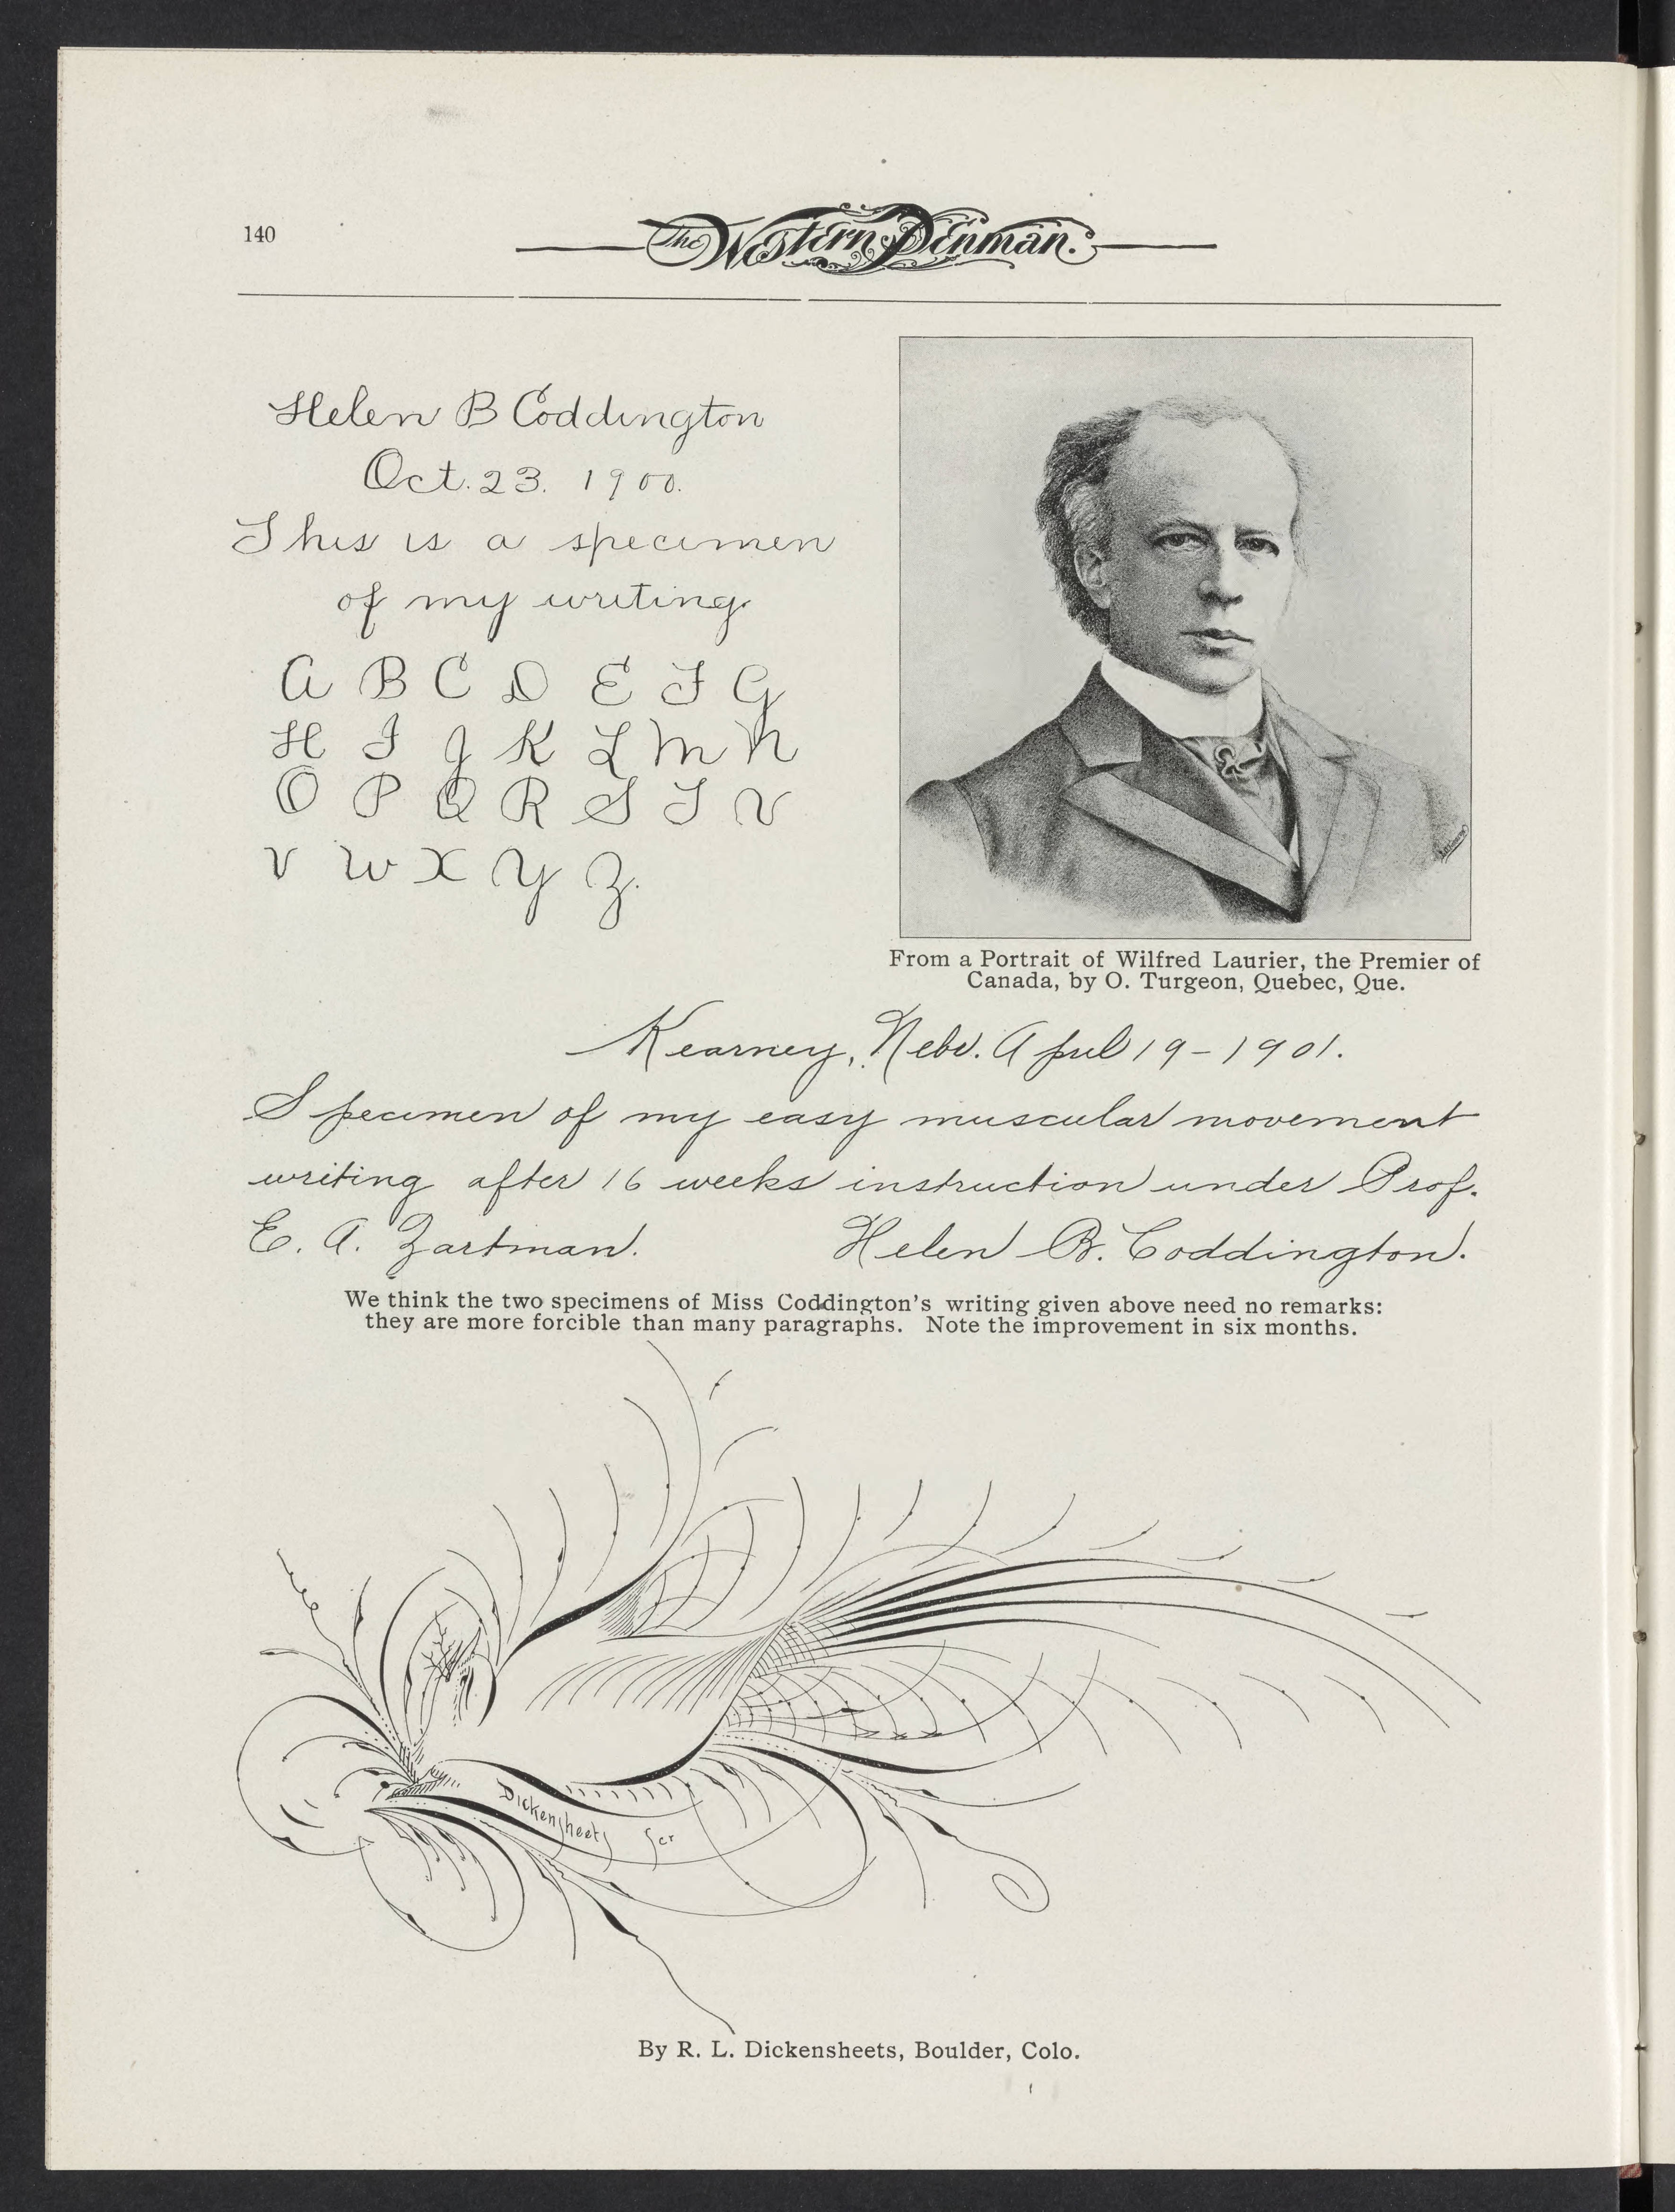 140
The Western Penman.
Helen B Coddington
Oct. 23. 1900.
This is a specimen
of my writing.
A B C D E F G
H I J K L M N
O P Q R S T U
V W X Y Z.
From a Portrait of Wilfred Laurier, the Premier of
Canada, by O. Turgeon, Quebec, Que.
Kearney, Nebr. April 19 - 1901.
Specimen of my easy muscular movement
writing after 16 weeks instruction under Prof.
E. A. Zartman. Helen B. Coddington.
We think the two specimens of Miss Coddington's writing given above need no remarks:
they are more forcible than many paragraphs. Note the improvement in six months.
Dickensheets Scr
By R. L. Dickensheets, Boulder, Colo.